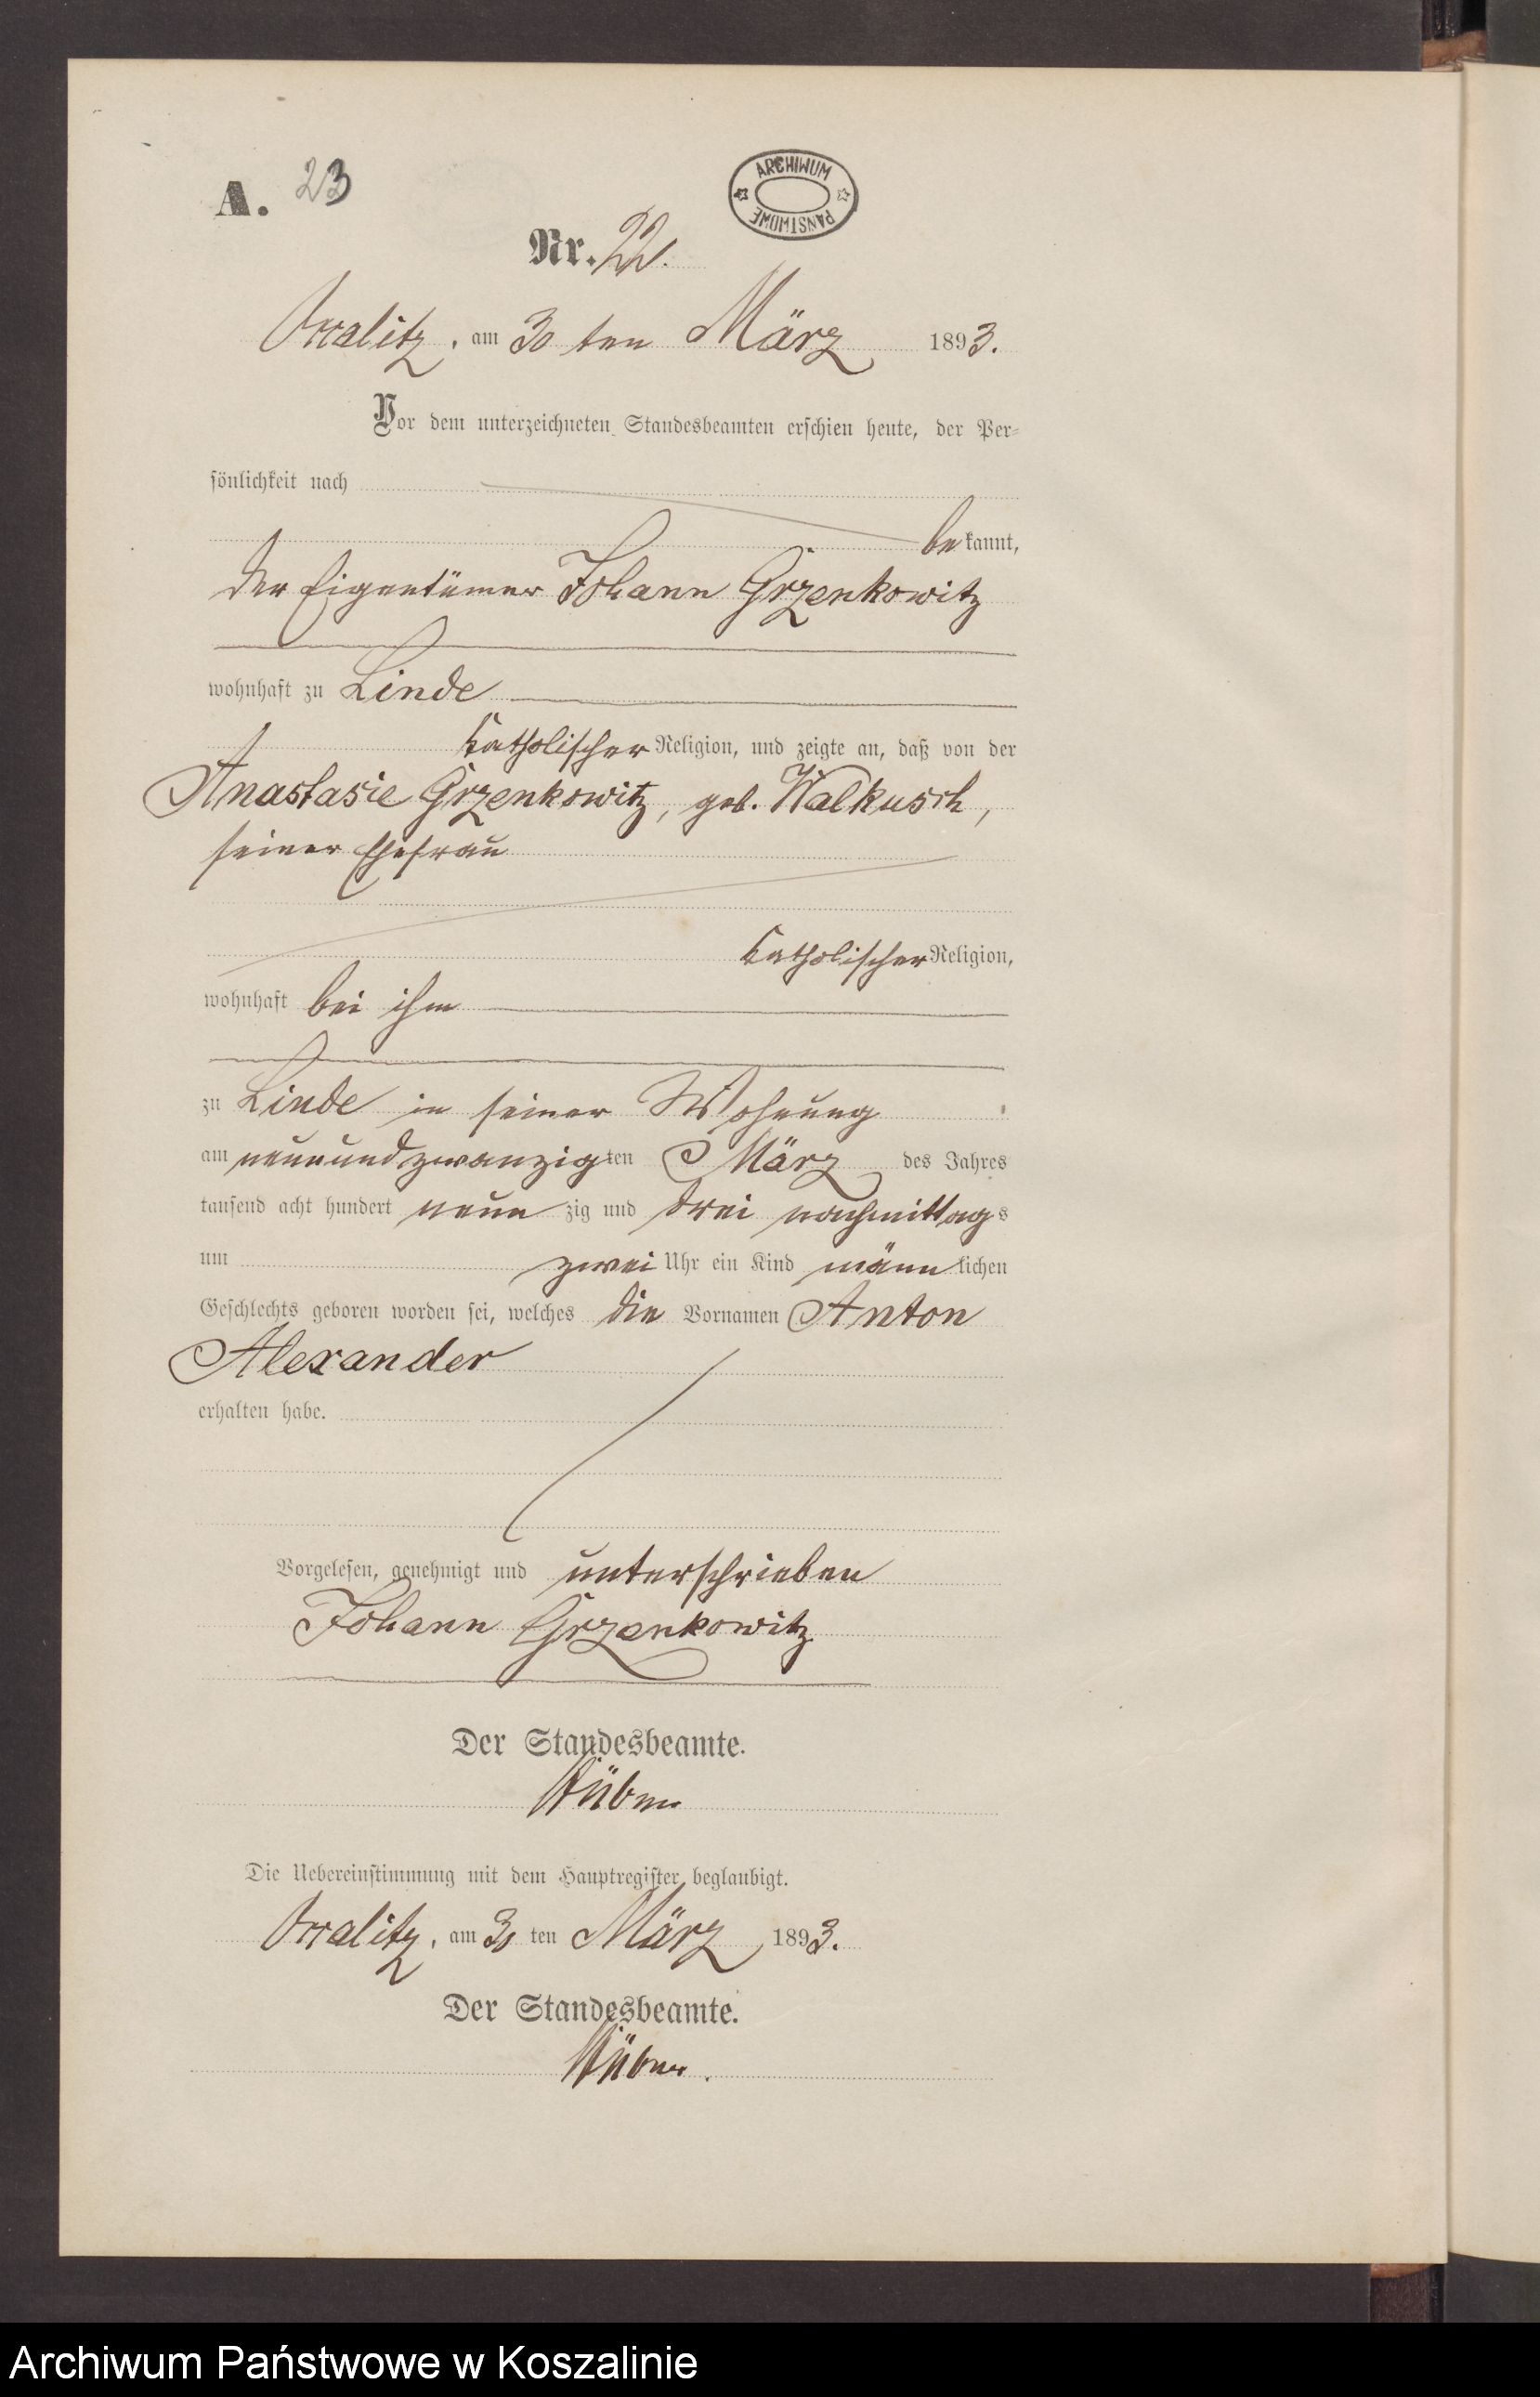 A. 23
ARCHIWUM PAŃSTWOWE
Nr. 22.
am 30 ten März 1893.
Vor dem unterzeichneten Standesbeamten erschien heute, der Per-
sönlichkeit nach
bekannt,
der Eigentümer Johann Grzenkowitz
wohnhaft zu Linde
katholischer Religion, und zeigte an, daß von der
Anastasie Grzenkowitz, geb. Walkusch,
seiner Ehefrau
katholischer Religion,
wohnhaft bei ihm
zu Linde in seiner Wohnung
am neunundzwanzigten März des Jahres
tausend acht hundert neunzig und drei nachmittags
um zwei Uhr ein Kind männlichen
Geschlechts geboren worden sei, welches die Vornamen Anton
Alexander
erhalten habe.
Vorgelesen, genehmigt und unterschrieben
Johann Grzenkowitz
Der Standesbeamte.
Die Uebereinstimmung mit dem Hauptregister beglaubigt.
am 30 ten März 1893.
Der Standesbeamte.
Archiwum Państwowe w Koszalinie